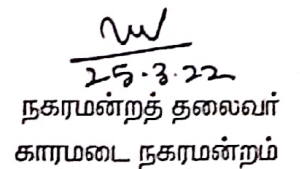 25.3.22
நகரமன்றத் தலைவர்
காரமடை நகரமன்றம்